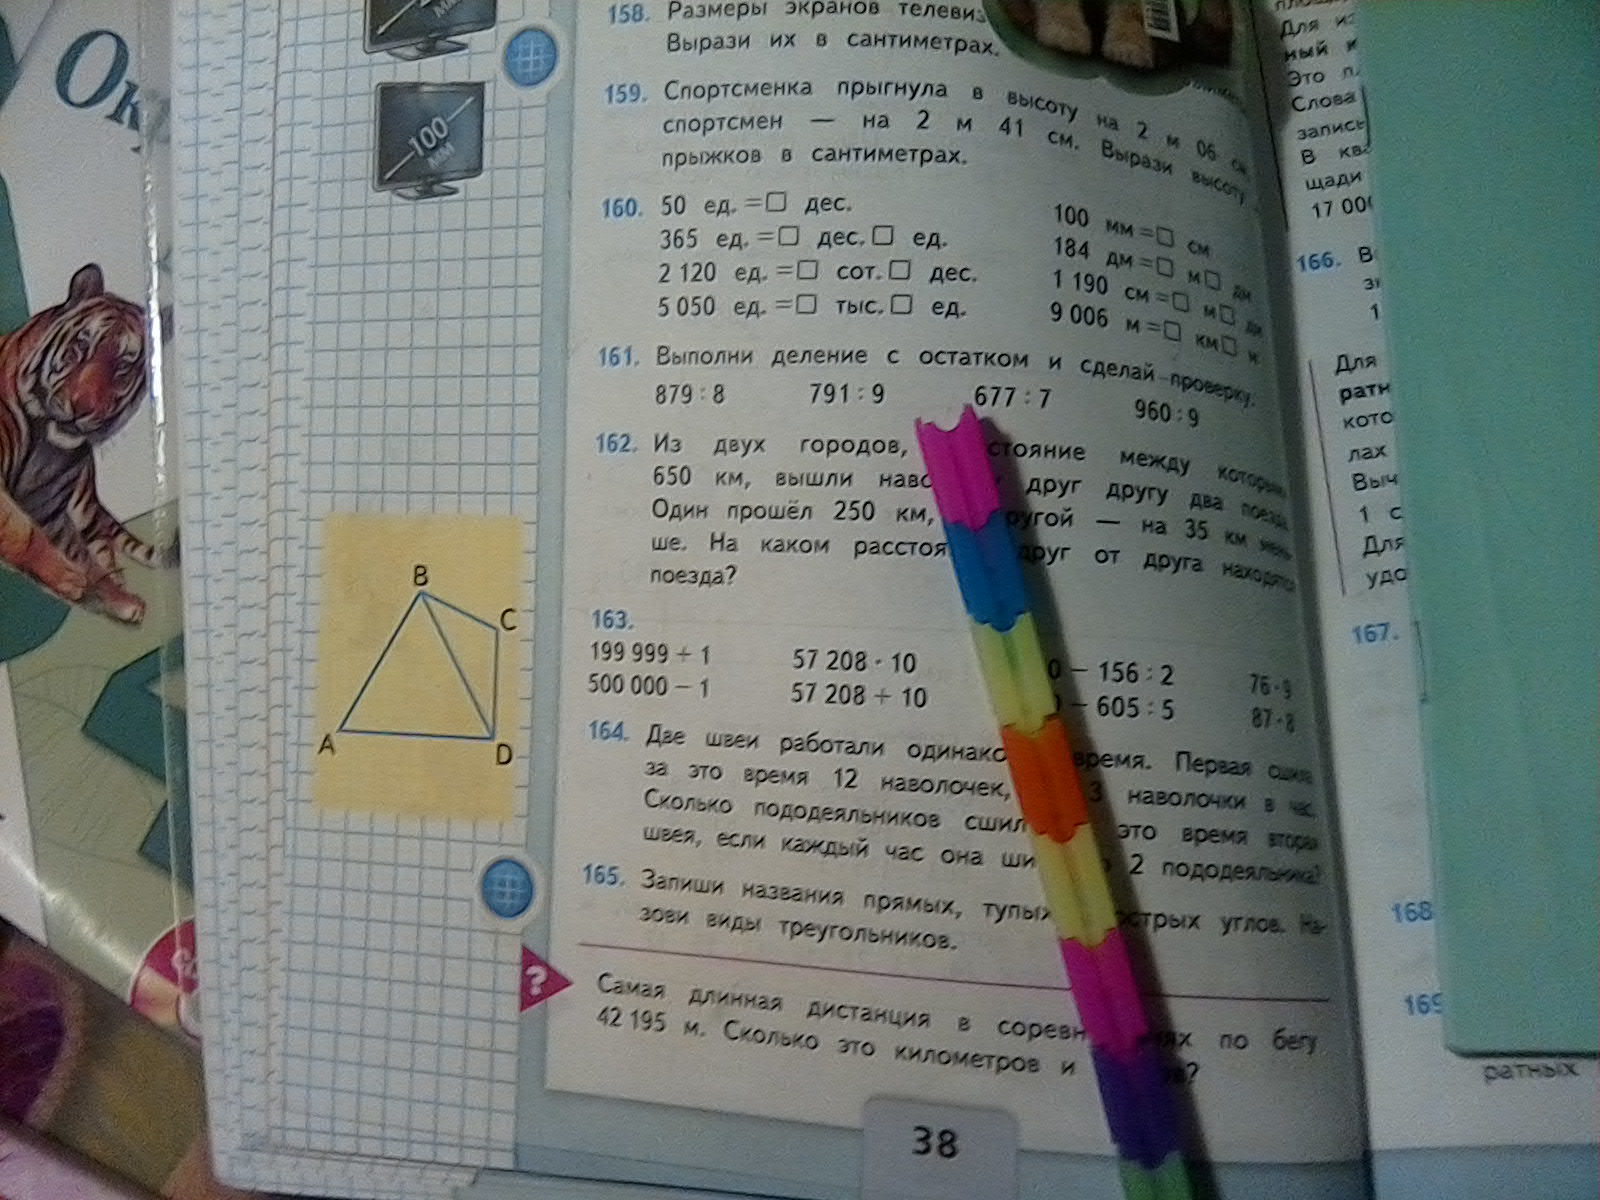 Ок
100
ММ
158. Размеры экранов
Вырази их в сантиметрах.
159. Спортсменка прыгнула в высоту на 2 м 06 см,
спортсмен — на 2 м 41 см. Вырази высоту
прыжков в сантиметрах.
160. 50 ед. = □ дес.
365 ед. = □ дес. □ ед.
2 120 ед. = □ сот. □ дес.
5 050 ед. = □ тыс. □ ед.
100 мм = □ см
184 дм = □ м □ дм
1 190 см = □ м □ дм
9 006 м = □ км □ м
161. Выполни деление с остатком и сделай проверку.
879 : 8 791 : 9 677 : 7 960 : 9
162. Из двух городов, стояние между которыми
650 км, вышли наво друг другу два поезда.
Один прошёл 250 км, ругой — на 35 км мень-
ше. На каком расстоя друг от друга находятся
поезда?
163.
199 999 + 1 57 208 · 10 0 − 156 : 2 76 · 9
500 000 − 1 57 208 + 10 − 605 : 5 87 · 8
164. Две швеи работали одинако время. Первая сшила
за это время 12 наволочек, 3 наволочки в час.
Сколько пододеяльников сшил это время вторая
швея, если каждый час она ши 2 пододеяльника?
165. Запиши названия прямых, тупых острых углов. На-
зови виды треугольников.
B
C
A
D
?
Самая длинная дистанция в соревн ях по бегу
42 195 м. Сколько это километров и
38
Для
ный
Это
Слова
запись
В
щади
17 00
166. В
1
Для
ратн
кото
лах
Выч
1 с
Для
удо
167.
168
169
ратных